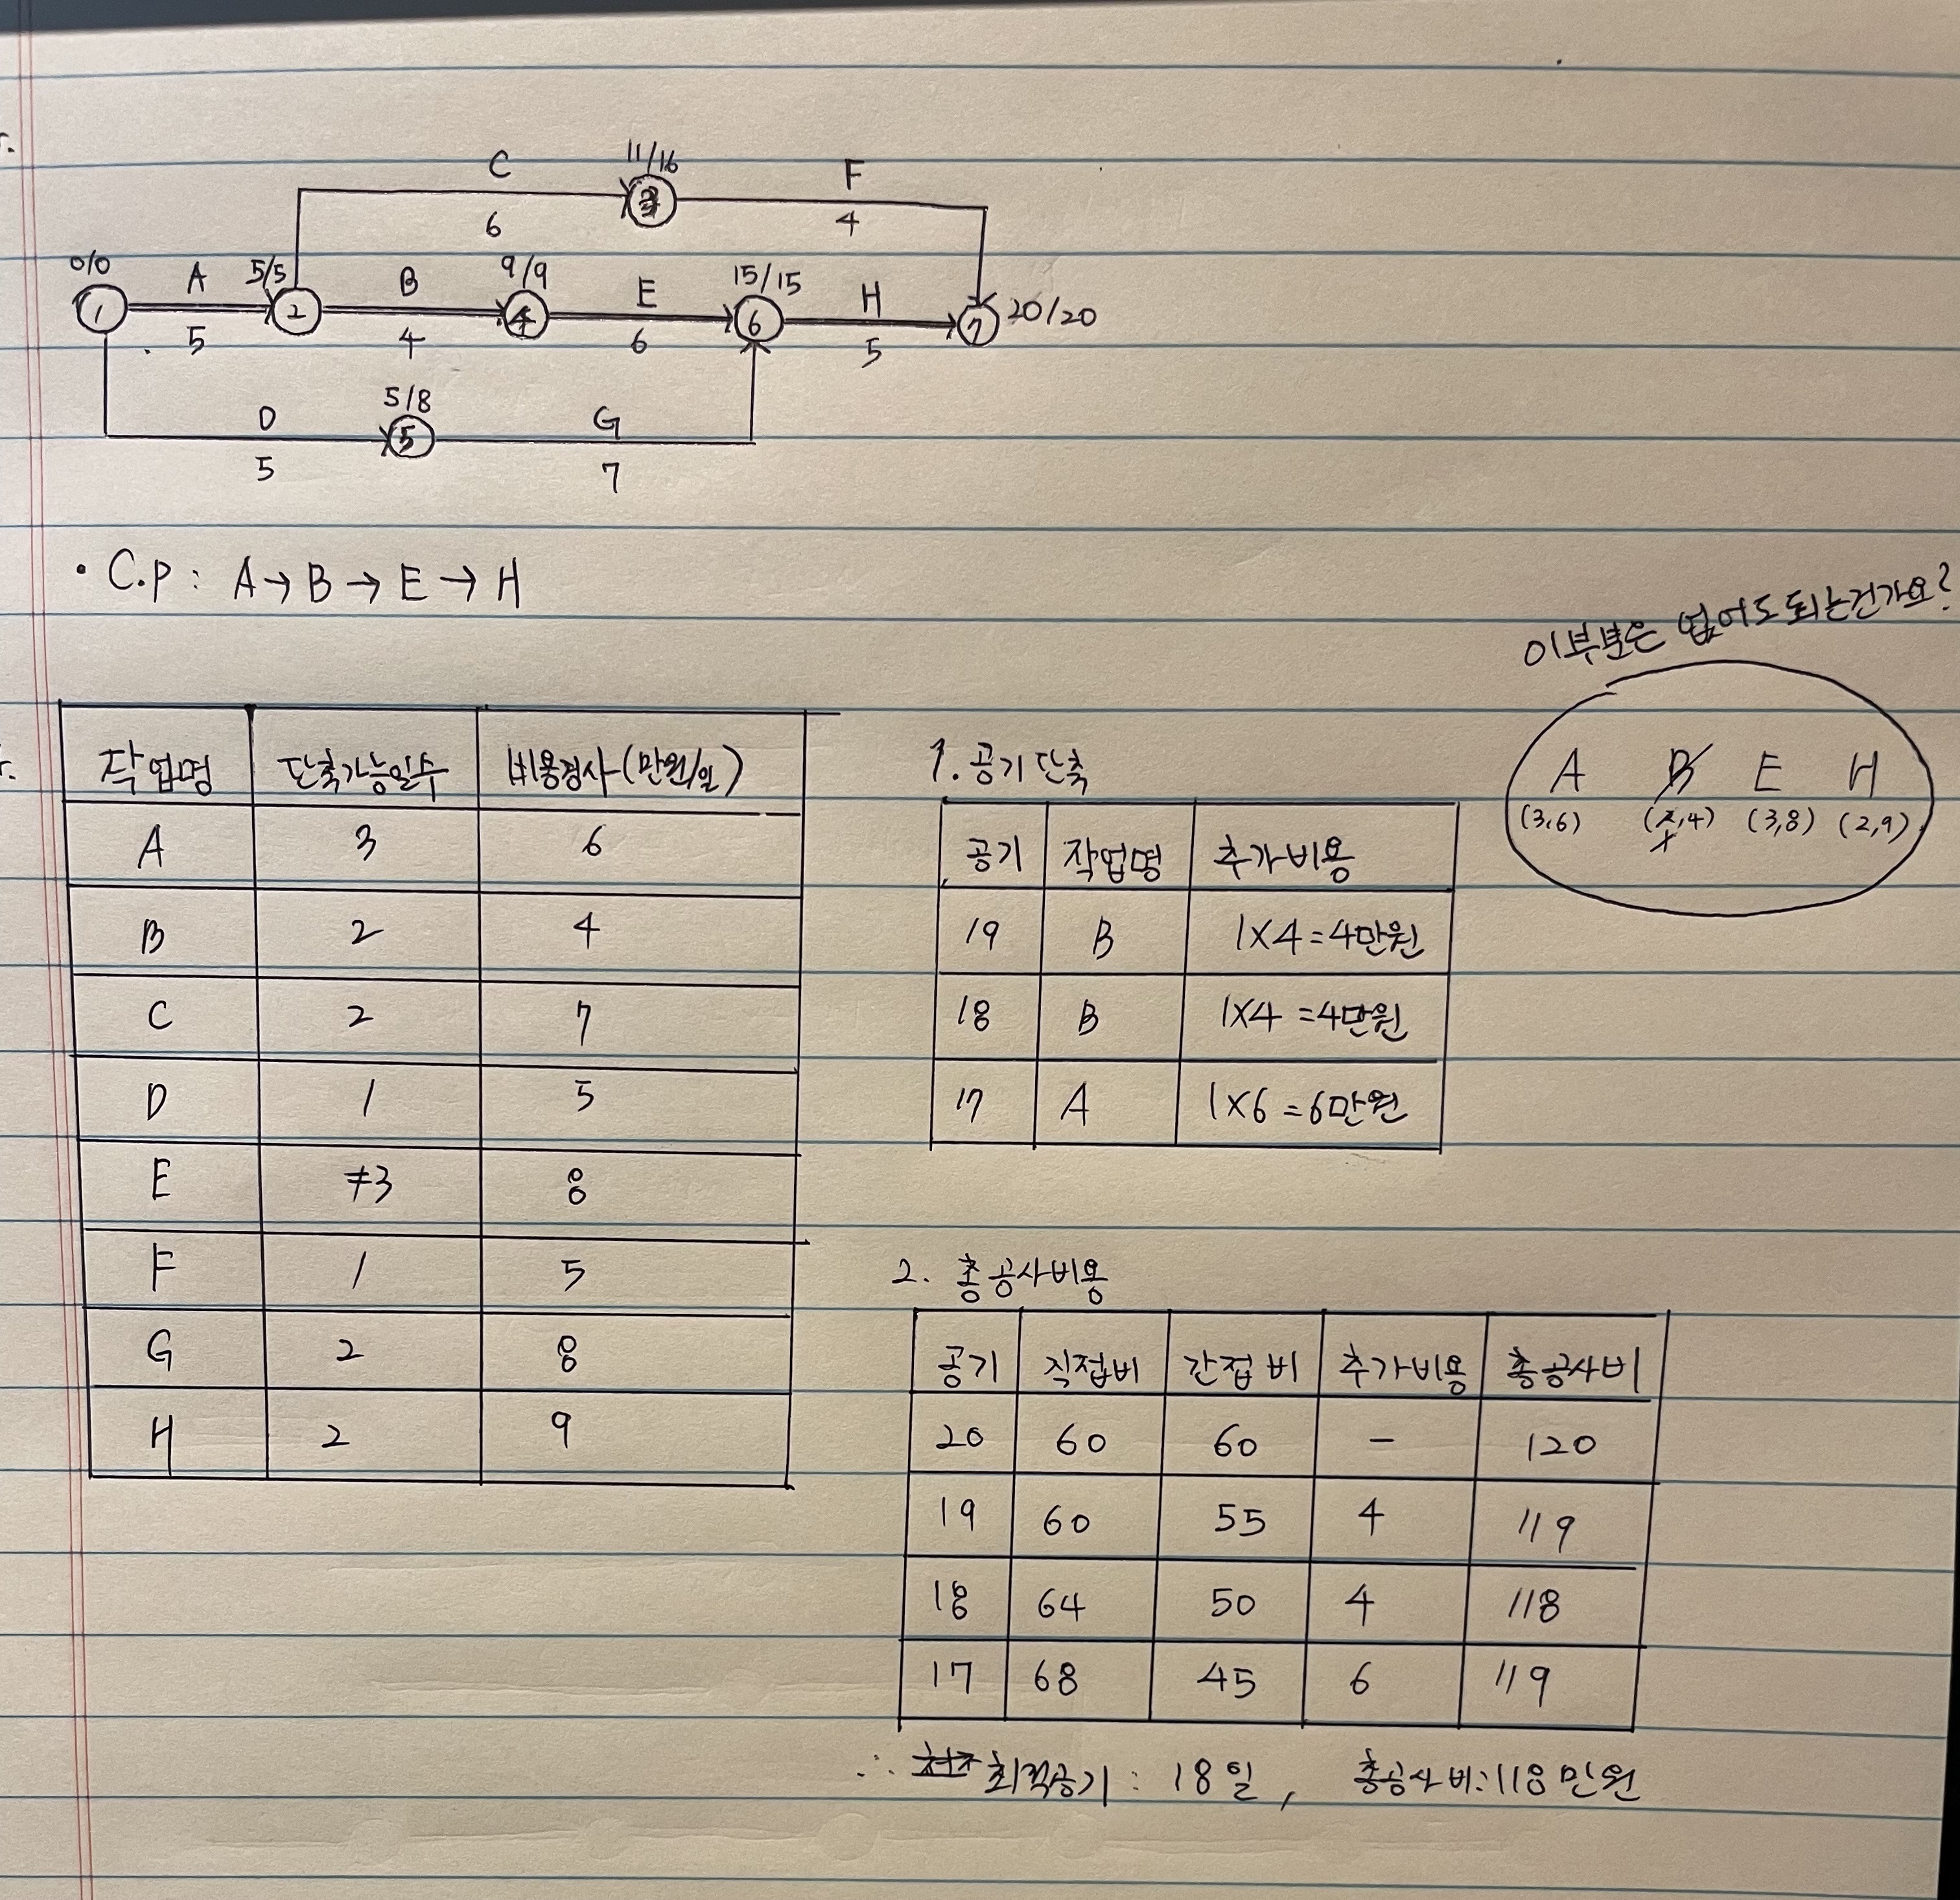 C 11/16 F
6 ③ 4
0/0 A 5/5 B 9/9 E 15/15 H
① ② ④ ⑥ ⑦ 20/20
5 4 6 5
D 5/8 G
5 ⑤ 7
· C.P : A → B → E → H
이부분은 없어도 되는건가요?
A B E H
(3,6) (2,4) (3,8) (2,9)
작업명 단축가능일수 비용경사(만원/일)
A 3 6
B 2 4
C 2 7
D 1 5
E 3 8
F 1 5
G 2 8
H 2 9
1. 공기단축
공기 작업명 추가비용
19 B 1×4=4만원
18 B 1×4=4만원
17 A 1×6=6만원
2. 총공사비용
공기 직접비 간접비 추가비용 총공사비
20 60 60 - 120
19 60 55 4 119
18 64 50 4 118
17 68 45 6 119
∴ 최적공기 : 18일, 총공사비:118만원